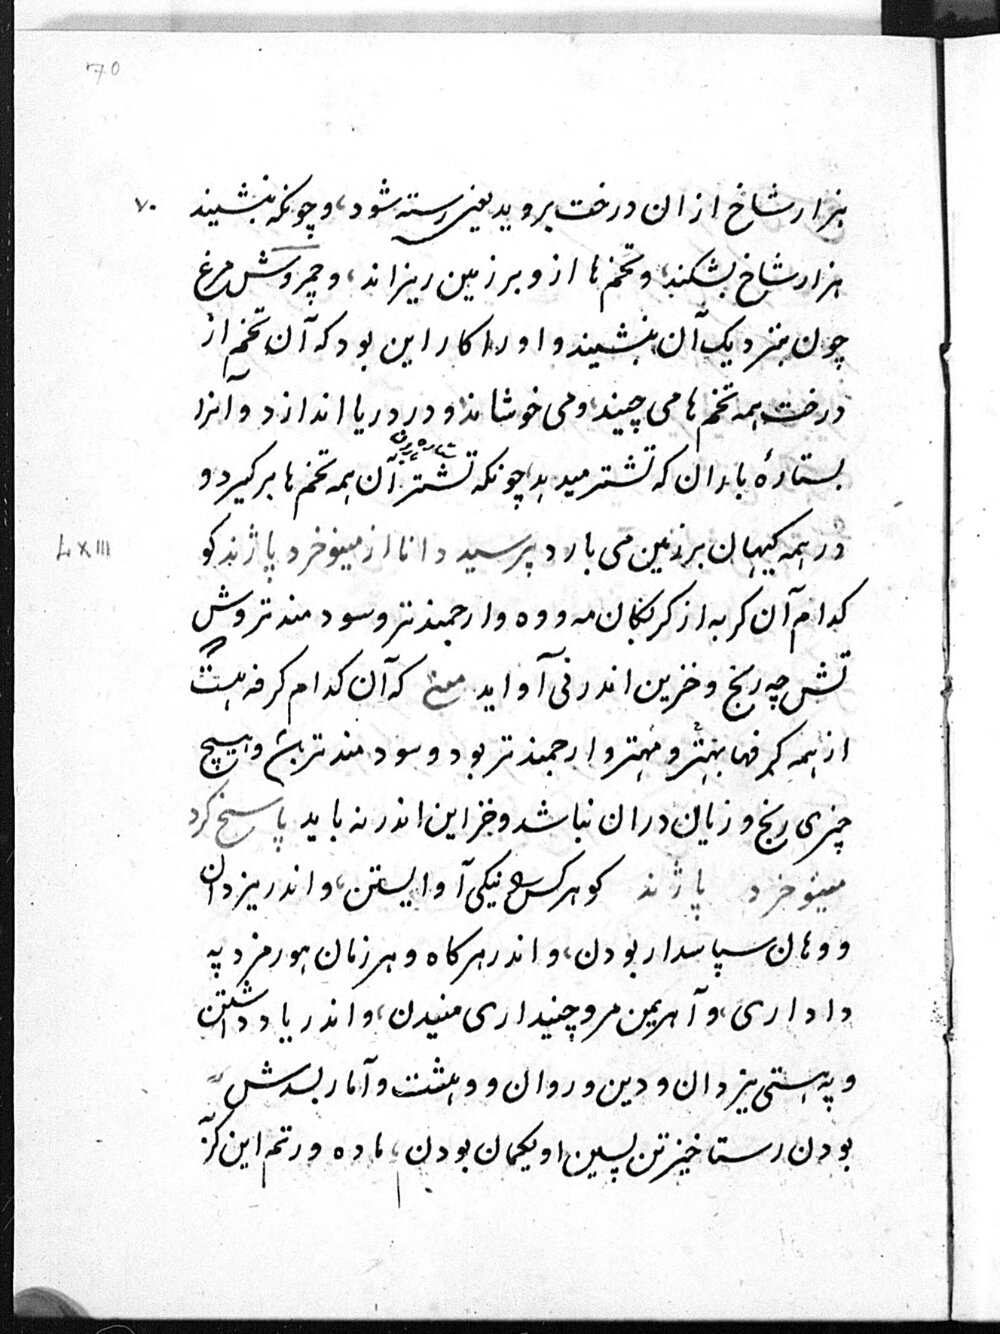 70
۷۰
هزار شاخ از ان درخت بروید یعنی رسته شود، و چونکه بنشیند
هزار شاخ بشکند، و تخم ها از و بر زمین ریزاند، و چمروش مرغ
چون بنزدیک آن بنشیند و او را کار این بود که آن تخم از
درخت همه تخم ها می چیند، و می خوشاند و در دریا اندازد و آنرا
ستاره باران
بستارهٔ باران که تشتر میدهد، چونکه تشتر آن همه تخم ها برگیرد و
LXIII
در همه کیهان بر زمین می بارد پرسید دانا از مینوخرد پاژند کو
کدام آن کربه از کرفکان مه و وه و ارجمندتر و سودمندتر وش
تش چه رنج و خزین اندر نی آواید معنی که آن کدام کرفه هست
از همه کرفها بهتر و مهتر و ارجمندتر بود و سودمندتر و هیچ
چیزی رنج و زیان دران نباشد و خزاین اندر نه باید پاسخ کرد
مینوخرد پاژند کو هرکس نیکی آوایستن، و اندر یزدان
و وهان سپاسدار بودن، و اندر هر گاه و هر زمان هورمزد په
داداری، و آهریمن مروچنیداری منیدن، و اندر یاد داشتن
و په هستی یزدان و دین و روان و وهشت و آمار بسدش
بودن رستاخیز تن پسین اویکمان بودن، ماده ورتم این کز